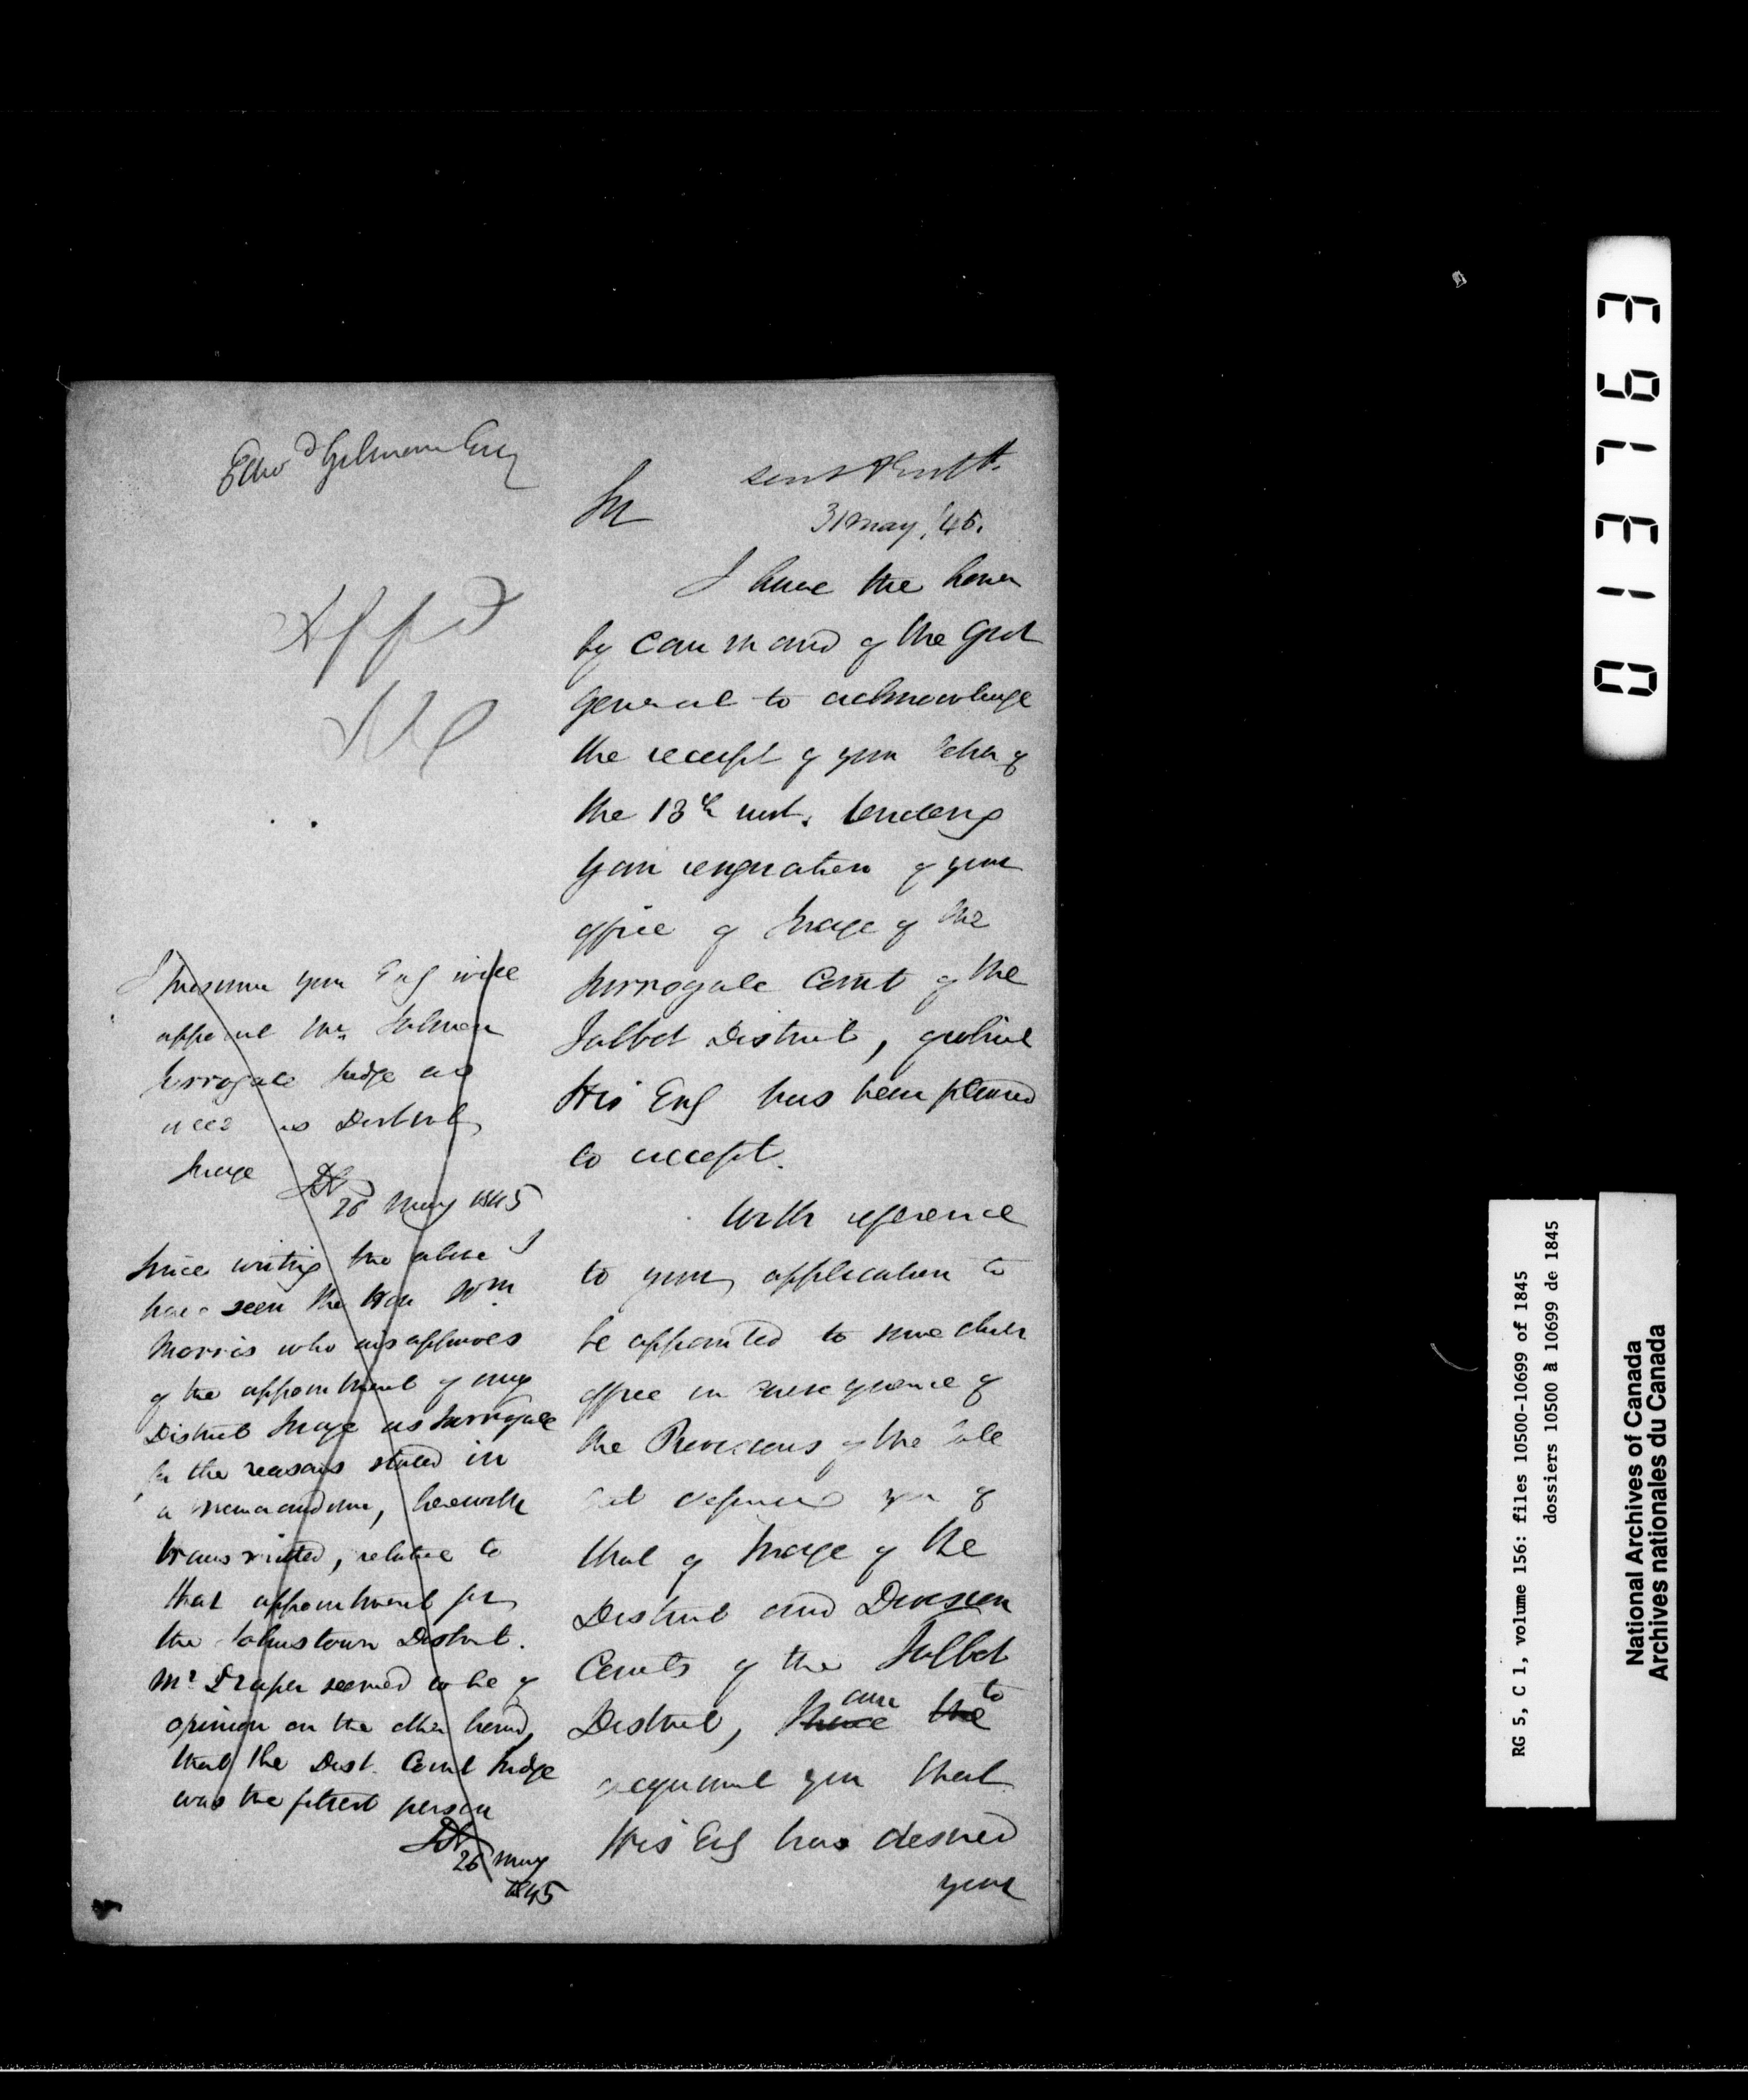 Edwd Gilman Esq
Appd
31 May '45.
Sir
I have the honor
by command of the Govr
General to acknowledge
the receipt of your letter of
the 13th inst. tendering
your resignation of your
office of Judge of the
Surrogate Court of the
Talbot District, which
His Excy has been pleased
to accept.
With reference
to your application to
be appointed to some other
office in consequence of
the Provisions of the late
Act depriving you of
that of Judge of the
District and Division
Courts of the Talbot
District, I have the am to
acquaint you that
His Excy has desired
your
I presume your Excy will
appoint Mr. Salmon
Surrogate Judge as
well as District
Judge
26 May 1845
Since writing the above I
have seen the Hon Wm
Morris who disapproves
of the appointment of any
District Judge as Surrogate
for the reasons stated in
a memorandum, herewith
transmitted, relative to
that appointment for
the Johnstown District.
Mr Draper seemed to be of
opinion on the other hand,
that the Dist. Court Judge
was the fittest person
26 May
1845
013763
RG 5, C 1, volume 156: files 10500-10699 of 1845
dossiers 10500 à 10699 de 1845
National Archives of Canada
Archives nationales du Canada